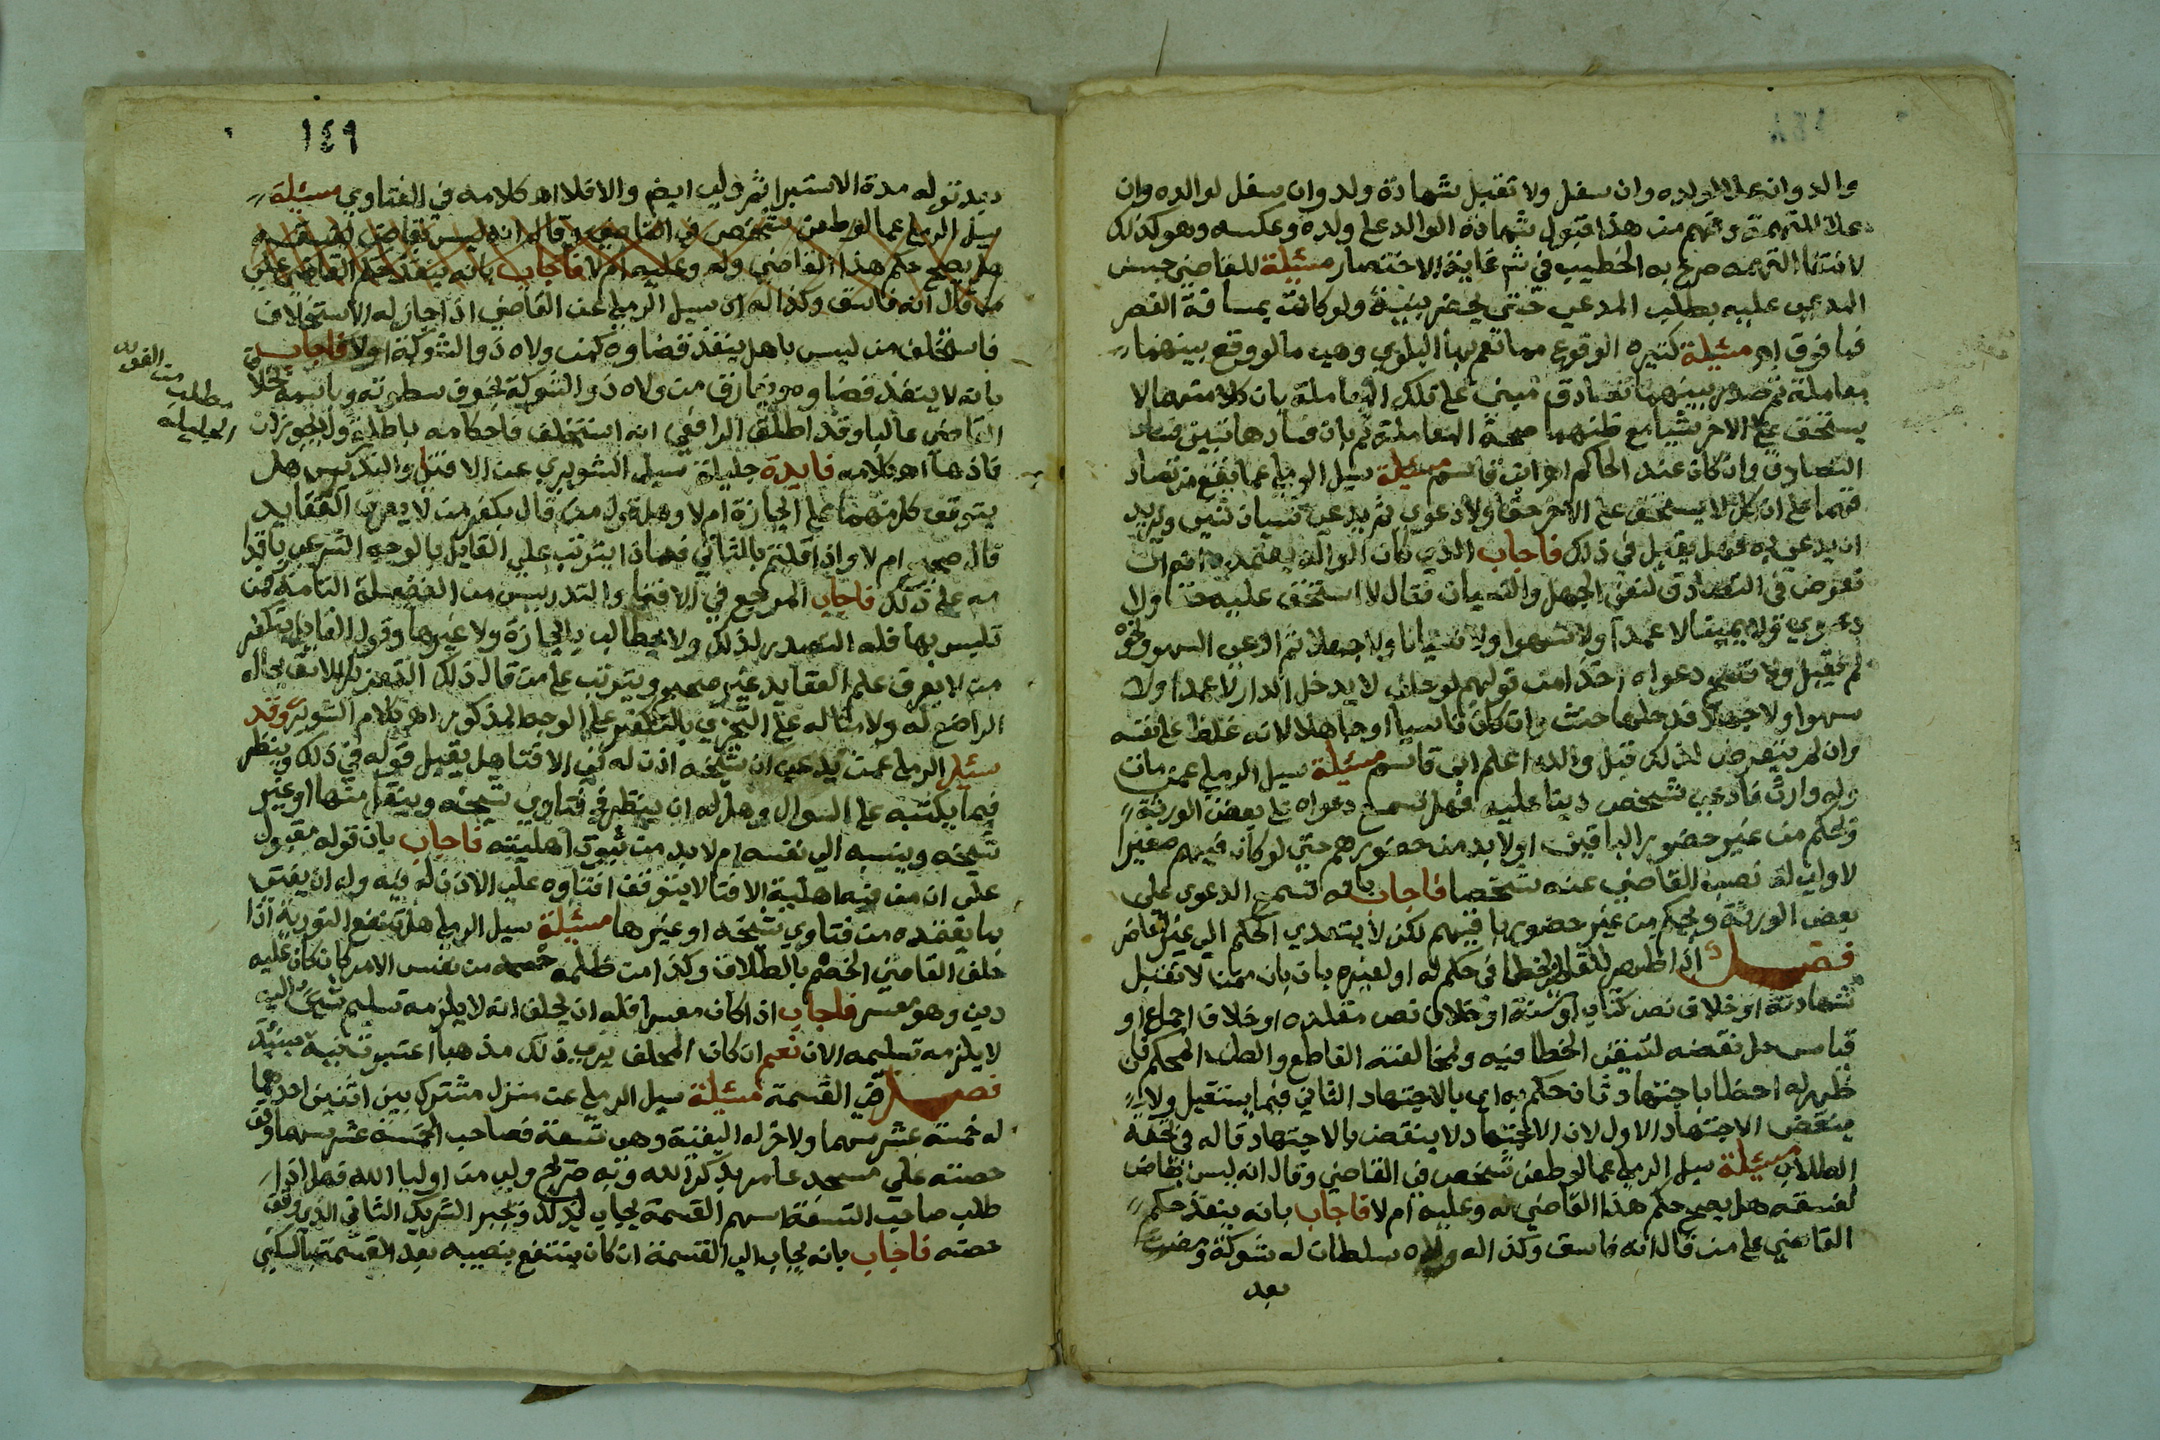 والد وان علا لولده وان سفل ولا تقبل شهادة ولد وان سفل لوالده وان
علا للتهمة وفهم من هذا قبول شهادة الوالد على ولده وعكسه وهو كذلك
لانتفا التهمه صرح به الخطيب في شرح غاية الاختصار مسئلة للقاضي حبس
المدعى عليه بطلب المدعي حتى يحضر بينة ولو كانت بمسافة القصر
فما فوق اهـ مسئلة كثيره الوقوع مما تعم بها البلوي وهي ما لو وقع بينهما
معاملة ثم صدر بينهما تصادق مبني على تلك المعاملة بان كلا منهما لا
يستحق على الاخر شيا مع ظنهما صحة المعاملة ثم بان فسادها تبين فساد
التصادق وان كان عند الحاكم اهـ ابن قاسم مسئلة سيل الرملي عما يقع من تصاد
قهما على ان كلا لا يستحق على الاخر حقا ولا دعوي ثم يدعي نسيان شي ويريد
ان يدعي به فهل يقبل في ذلك فاجاب الذي كان الوالد يعتمده انه ان
تعرض في التصادق لنفي الجهل والنسيان فقال لا استحق عليه حقا ولا
دعوي ولا يمينا لا عمدا ولا سهوا ولا نسيانا ولا جهلا ثم ادعى السهو ونحوه
لم تقبل ولا تسمع دعواه اخذا من قولهم لو حلف لا يدخل الدار لا عمدا ولا
سهوا ولا جهلا فدخلها حنث وان كان ناسيا او جاهلا لانه غلظ على نفسه
وان لم يتعرض لذلك قبل والله اعلم ابن قاسم مسئلة سيل الرملي عمن مات
وله وارث فادعي شخص دينا عليه فهل تسمع دعواه على بعض الورثة
ويحكم من غير حضور الباقين او لا بد من حضورهم حتى لو كان فيهم صغيرا
لا ولي له نصب القاضي عنه شخصا فاجاب بانه تسمع الدعوي على
بعض الورثة ويحكم من غير حضور باقيهم لكن لا يتعدي الحكم الى غير الحاضر
فصل اذا ظهر للقاضي الخطا في حكم له او لغيره بان بان ممن لا تقبل
شهادته او خلاف نص كتاب او سنة او خلاف نص مقلده او خلاف اجماع او
قياس جلي نقضه لتيقن الخطا فيه ولمخالفته القاطع والظن المحكم فان
ظهر له الخطا باجتهاد ثان حكم به اي بالاجتهاد الثاني فيما يستقبل ولا
ينقض الاجتهاد الاول لان الاجتهاد لا ينقض بالاجتهاد قاله في تحفة
الطلاب مسئلة سيل الرملي عما لو طعن شخص في القاضي وقال انه ليس بقاض
لفسقه هل يصح حكم هذا القاضي له وعليه ام لا فاجاب بانه ينفذ حكم
القاضي على من قال انه فاسق وكذا له ولاه سلطان له شوكة
بعد
١٤٩
مدة الاستبرا ثم ولي ايض والا فلا اهـ كلامه في الفتاوي مسئلة
سيل الرملي عما لو طعن شخص في القاضي وقال انه ليس بقاض لفسقه
هل يصح حكم هذا القاضي وله وعليه ام لا فاجاب بانه ينفذ حكم القاضي على
من قال انه فاسق وكذا له ان سيل الرملي عن القاضي اذا جاز له الاستخلاف
فاستخلف من ليس باهل ينفذ قضاوه كمن ولاه ذوالشوكة او لا فاجاب
بانه لا ينفذ قضاوه وفارق من ولاه ذوالشوكة لخوف سطوته وباسه بخلاف
القاضي غالبا وقد اطلق الرافعي انه استخلف فاحكامه باطلة ولا يجوز ان
فاذها اهـ كلامه فايدة جليلة سيل الشوبري عن الافتا والتدريس هل
يتوقف كل منهما على اجازة ام لا وهل قول من قال بكفر من لا يعرف العقايد
قال صحيح ام لا واذا قلتم بالثاني فماذا يترتب على القايل بالوجه الشرعي باقدا
مه على ذلك فاجاب المرجع في الافتا والتدريس من الفضيلة التامة فمن
تلبس بها فله التصدر لذلك ولا يطالب باجازة ولا غيرها وقول القايل بتكفير
من لا يعرف علم العقايد غير صحيح ويترتب على من قال ذلك التعزير اللائق بحاله
الرادع له ولامثاله على التجري بالتكفير على الوجه المذكور اهـ كلام الشوبري وقد
سئل الرملي عمن يدعى ان شيخه اذن له في الافتا هل يقبل قوله في ذلك وينظر
فيما يكتبه على السوال وهل له ان ينظر في فتاوي شيخه وينقل منها او غير
شيخه وينسبه الي نفسه ام لا بد من ثبوت اهليته فاجاب بان قوله مقبول
على ان من فيه اهلية الافتا لا يتوقف افتاوه على الاذن له فيه وله ان يفتى
بما يعتمده من فتاوي شيخه او غيرها مسئلة سيل الرملي هل تنفع التورية اذا
حلف القاضي الخصم بالطلاق وكذا من ظلمه خصمه من نفس الامر كان كان عليه
دين وهو معسر فاجاب اذا كان معسرا فله ان يحلف انه لا يلزمه تسليم شي الي
لا يلزمه تسليمه الان نعم ان كان المحلف يرى ذلك مذهبا اعتبر نيته حينيذ
فصل في القسمة مسئلة سيل الرملي عن منزل مشترك بين اثنين احدهما
له خمسة عشر سهما ولاخر له البقية وهي تسعة فصاحب الخمسة عشر سهما وقف
حصته على مسجد عامر بذكر الله وفيه ضريح ولي من اوليا الله فهل اذا
طلب صاحب التسعة اسهم القسمة يجاب لذلك ويجبر الشريك الثاني الذي وقف
حصته فاجاب بانه يجاب الي القسمة ان كان ينتفع بنصيبه بعد القسمة بالسكنى
مطلب
من الفوايد
الجليلة